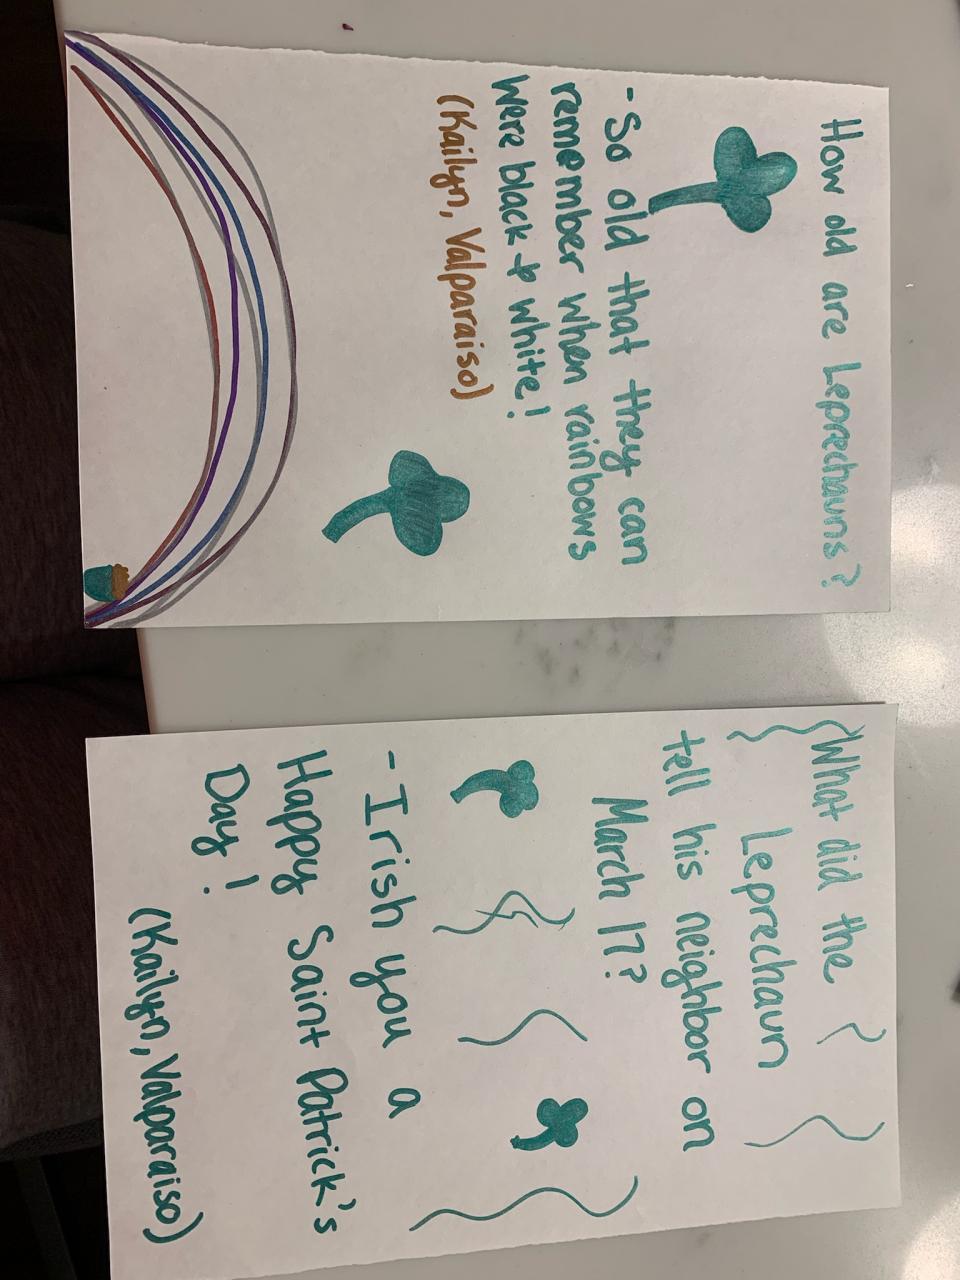 How old are Leprechauns?
-So old that they can
remember when rainbows
were black & white!
(Kailyn, Valparaiso)
What did the
Leprechaun
tell his neighbor on
March 17?
-Irish you a
Happy Saint Patrick's
Day!
(Kailyn, Valparaiso)